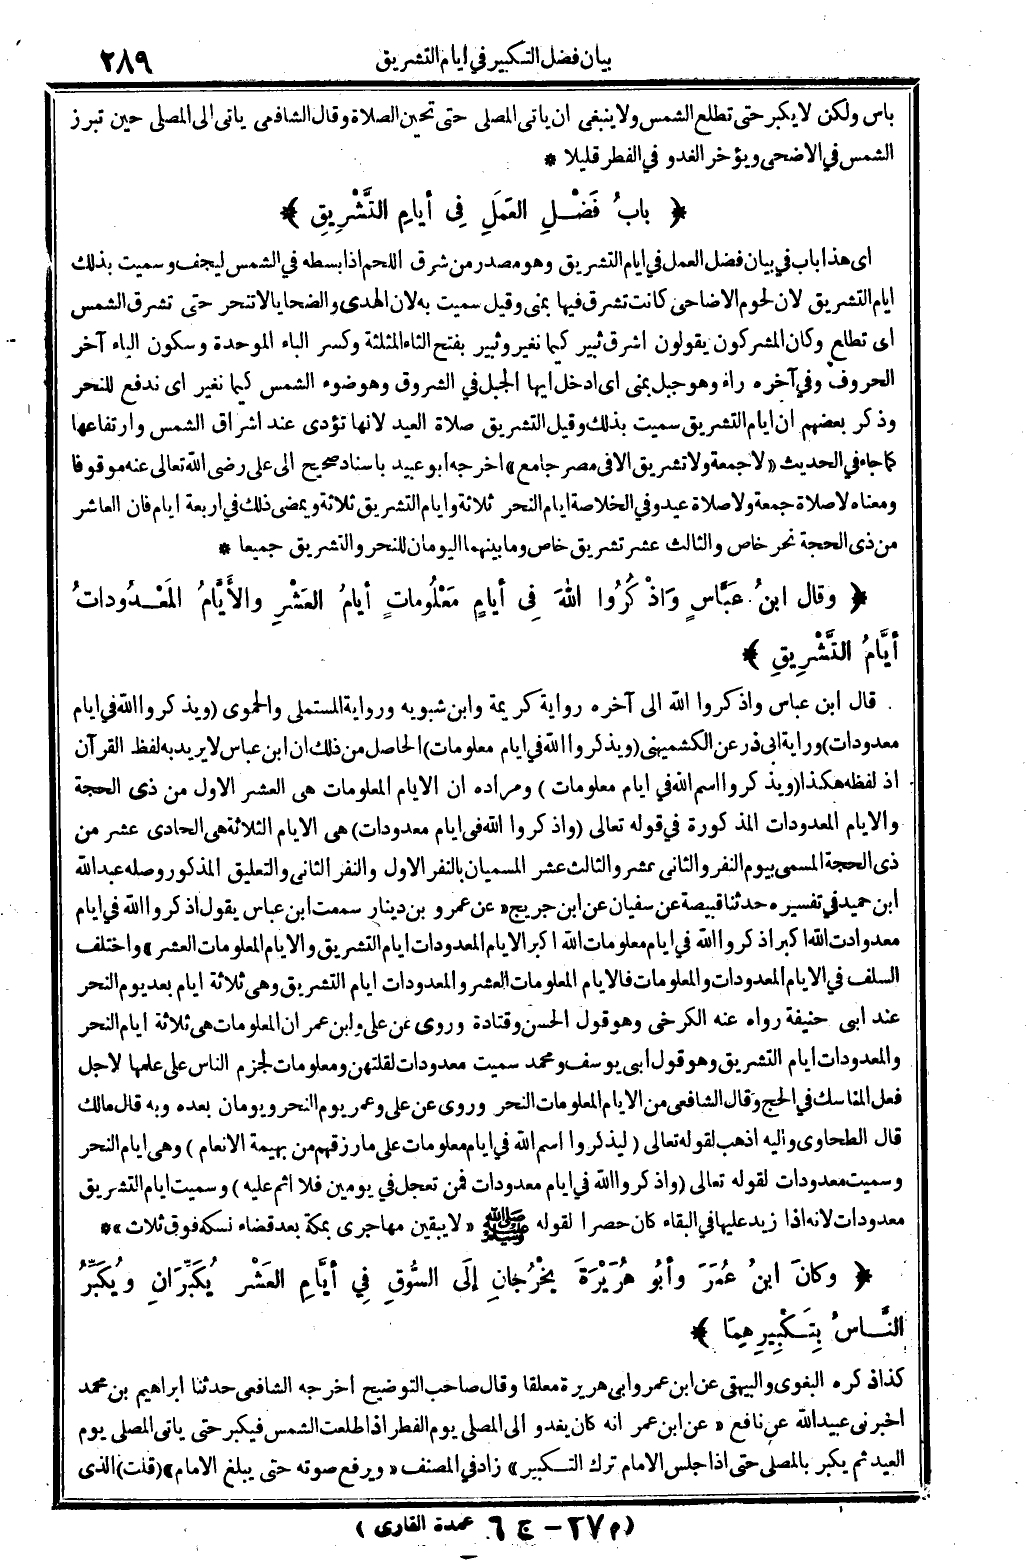 بيان فضل التكبير في ايام التشريق ٢٨٩
باس ولكن لا يكبر حتى تطلع الشمس ولا ينبغي ان ياتى المصلى حتى تحين الصلاة وقال الشافعى ياتى الى المصلى حين تبرز
الشمس في الاضحى ويؤخر الغدو في الفطر قليلا *
﴿ بابُ فَضْلِ العَمَلِ فِى أيامِ التَّشْرِيقِ ﴾
اى هذا باب في بيان فضل العمل في ايام التشريق وهو مصدر من شرق اللحم اذا بسطه في الشمس ليجف وسميت بذلك
ايام التشريق لان لحوم الاضاحى كانت تشرق فيها بمنى وقيل سميت به لان الهدى والضحايا لا تنحر حتى تشرق الشمس
اى تطلع وكان المشركون يقولون اشرق ثبير كيما نغير وثبير بفتح الثاء المثلثة وكسر الباء الموحدة وسكون الياء آخر
الحروف وفي آخره راء وهو جبل بمنى اى ادخل ايها الجبل في الشروق وهو ضوء الشمس كيما نغير اى ندفع للنحر
وذكر بعضهم ان ايام التشريق سميت بذلك وقيل التشريق صلاة العيد لانها تؤدى عند اشراق الشمس وارتفاعها
كما جاء في الحديث «لا جمعة ولا تشريق الا فى مصر جامع» اخرجه ابو عبيد باسناد صحيح الى على رضى الله تعالى عنه موقوفا
ومعناه لا صلاة جمعة ولا صلاة عيد وفي الخلاصة ايام النحر ثلاثة وايام التشريق ثلاثة ويمضى ذلك في اربعة ايام فان العاشر
من ذى الحجة نحر خاص والثالث عشر تشريق خاص وما بينهما اليومان للنحر والتشريق جميعا *
﴿ وقال ابنُ عَبَّاسٍ وَاذْكُرُوا اللهَ فِى أيامٍ مَعْلُوماتٍ أيامُ العَشْرِ والأَيَّامُ المَعْدُودَاتُ
أيَّامُ التَّشْرِيقِ ﴾
قال ابن عباس واذكروا الله الى آخره رواية كريمة وابن شبويه ورواية المستملى والحموى (ويذكروا الله في ايام
معدودات) ورواية ابى ذر عن الكشميهنى (ويذكروا الله في ايام معلومات) الحاصل من ذلك ان ابن عباس لا يريد به لفظ القرآن
اذ لفظه هكذا (ويذكروا اسم الله في ايام معلومات) ومراده ان الايام المعلومات هى العشر الاول من ذى الحجة
والايام المعدودات المذكورة في قوله تعالى (واذكروا الله فى ايام معدودات) هى الايام الثلاثة هى الحادى عشر من
ذى الحجة المسمى بيوم النفر والثانى عشر والثالث عشر المسميان بالنفر الاول والنفر الثانى والتعليق المذكور وصله عبد الله
ابن حميد في تفسيره حدثنا قبيصة عن سفيان عن ابن جريج «عن عمرو بن دينار سمعت ابن عباس يقول اذكروا الله في ايام
معدوادت الله اكبر اذكروا الله في ايام معلومات الله اكبر الايام المعدودات ايام التشريق والايام المعلومات العشر» واختلف
السلف في الايام المعدودات والمعلومات فالايام المعلومات العشر والمعدودات ايام التشريق وهى ثلاثة ايام بعد يوم النحر
عند ابى حنيفة رواه عنه الكرخى وهو قول الحسن وقتادة وروى عن على وابن عمر ان المعلومات هى ثلاثة ايام النحر
والمعدودات ايام التشريق وهو قول ابى يوسف ومحمد سميت معدودات لقلتهن ومعلومات لجزم الناس على علمها لاجل
فعل المناسك في الحج وقال الشافعى من الايام المعلومات النحر وروى عن على وعمر يوم النحر ويومان بعده وبه قال مالك
قال الطحاوى واليه اذهب لقوله تعالى (ليذكروا اسم الله في ايام معلومات على ما رزقهم من بهيمة الانعام) وهى ايام النحر
وسميت معدودات لقوله تعالى (واذكروا الله في ايام معدودات فمن تعجل في يومين فلا اثم عليه) وسميت ايام التشريق
معدودات لانه اذا زيد عليها في البقاء كان حصرا لقوله ﷺ «لا يبقين مهاجرى بمكة بعد قضاء نسكه فوق ثلاث»*
﴿ وكانَ ابنُ عُمَرَ وأبُو هُرَيْرَةَ يَخْرُجانِ إلَى السُّوقِ فِي أيَّامِ العَشْرِ يُكَبِّرَانِ ويُكَبِّرُ
النَّاسُ بِتَكْبِيرِهِمَا ﴾
كذا ذكره البغوى والبيهقى عن ابن عمر وابى هريرة معلقا وقال صاحب التوضيح اخرجه الشافعى حدثنا ابراهيم بن محمد
اخبرنى عبيد الله عن نافع «عن ابن عمر انه كان يغدو الى المصلى يوم الفطر اذا طلعت الشمس فيكبر حتى ياتى المصلى يوم
العيد ثم يكبر بالمصلى حتى اذا جلس الامام ترك التكبير» زاد في المصنف «ويرفع صوته حتى يبلغ الامام» (قلت) الذى
(م ٢٧ - ج ٦ عمدة القارى)